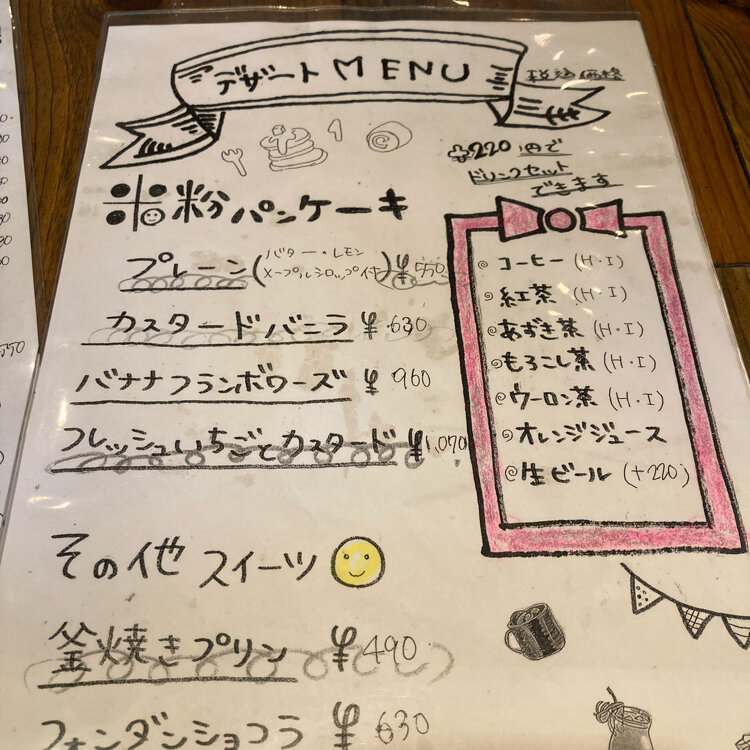 デザートMENU
税込価格
+220円で
ドリンクセット
できます
米粉パンケーキ
プレーン(バター・レモン
メープルシロップ付) ¥550
カスタードバニラ ¥630
バナナフランボワーズ ¥960
フレッシュいちごとカスタード ¥1,070
コーヒー (H・I)
紅茶 (H・I)
あずき茶 (H・I)
もろこし茶 (H・I)
ウーロン茶 (H・I)
オレンジジュース
生ビール (+220)
その他スイーツ
釜焼きプリン ¥490
フォンダンショコラ ¥630
550